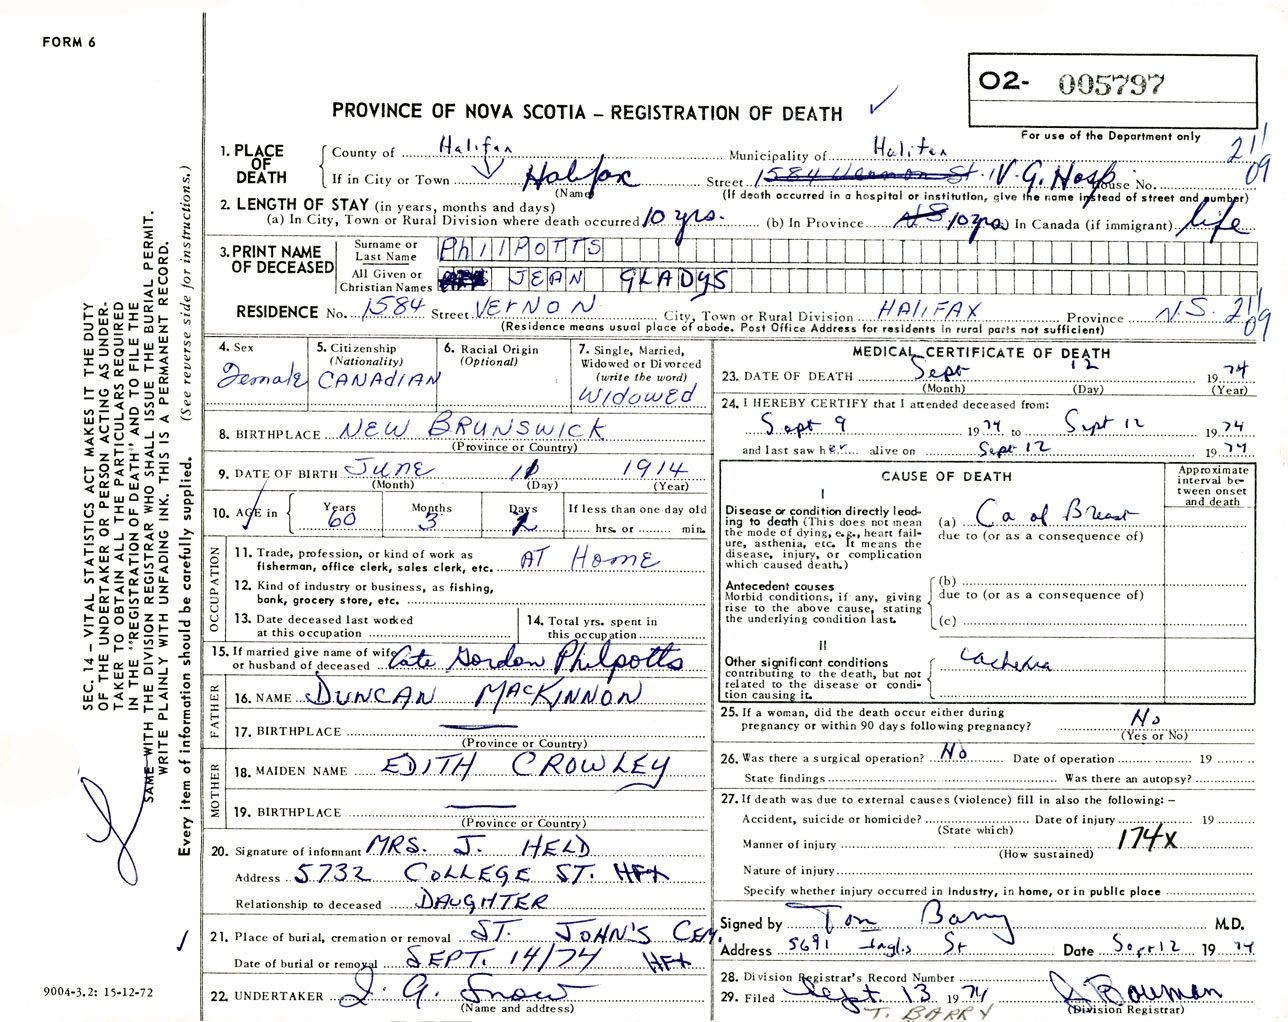 FORM 6
O2- 005797
PROVINCE OF NOVA SCOTIA – REGISTRATION OF DEATH
For use of the Department only
1. PLACE OF DEATH
County of Halifax Municipality of Halifax 21/09
If in City or Town Halifax Street 1584 Vernon St. V. G. Hosp House No.
(Name) (If death occurred in a hospital or institution, give the name instead of street and number)
2. LENGTH OF STAY (in years, months and days)
(a) In City, Town or Rural Division where death occurred 10 yrs. (b) In Province N.S 10 yrs (c) In Canada (if immigrant) life
3. PRINT NAME OF DECEASED
Surname or Last Name PHILPOTTS
All Given or Christian Names JEAN GLADYS
RESIDENCE No. 1584 Street VERNON City, Town or Rural Division HALIFAX Province N.S. 21/09
(Residence means usual place of abode. Post Office Address for residents in rural parts not sufficient)
4. Sex Female
5. Citizenship (Nationality) CANADIAN
6. Racial Origin (Optional)
7. Single, Married, Widowed or Divorced (write the word) WIDOWED
8. BIRTHPLACE NEW BRUNSWICK
(Province or Country)
9. DATE OF BIRTH JUNE 11 1914
(Month) (Day) (Year)
10. AGE in Years 60 Months 3 Days If less than one day old
hrs. or min.
OCCUPATION
11. Trade, profession, or kind of work as fisherman, office clerk, sales clerk, etc. AT HOME
12. Kind of industry or business, as fishing, bank, grocery store, etc.
13. Date deceased last worked at this occupation
14. Total yrs. spent in this occupation
15. If married give name of wife or husband of deceased Late Gordon Philpotts
FATHER
16. NAME DUNCAN MACKINNON
17. BIRTHPLACE —
(Province or Country)
MOTHER
18. MAIDEN NAME EDITH CROWLEY
19. BIRTHPLACE —
(Province or Country)
20. Signature of informant MRS. J. HELD
Address 5732 COLLEGE ST. HFX
Relationship to deceased DAUGHTER
21. Place of burial, cremation or removal ST. JOHN'S CEM.
Date of burial or removal SEPT. 14/74 HFX
22. UNDERTAKER J. A. Snow
(Name and address)
MEDICAL CERTIFICATE OF DEATH
23. DATE OF DEATH Sept 12 1974
(Month) (Day) (Year)
24. I HEREBY CERTIFY that I attended deceased from:
Sept 9 1974 to Sept 12 1974
and last saw her alive on Sept 12 1974
CAUSE OF DEATH
Approximate interval between onset and death
I
Disease or condition directly leading to death (This does not mean the mode of dying, e.g., heart failure, asthenia, etc. It means the disease, injury, or complication which caused death.)
(a) Ca of Breast
due to (or as a consequence of)
Antecedent causes
Morbid conditions, if any, giving rise to the above cause, stating the underlying condition last.
(b)
due to (or as a consequence of)
(c)
II
Other significant conditions contributing to the death, but not related to the disease or condition causing it.
Cachexia
25. If a woman, did the death occur either during pregnancy or within 90 days following pregnancy? No
(Yes or No)
26. Was there a surgical operation? No Date of operation 19
State findings Was there an autopsy?
27. If death was due to external causes (violence) fill in also the following: –
Accident, suicide or homicide? Date of injury 19
(State which)
Manner of injury 174X
(How sustained)
Nature of injury
Specify whether injury occurred in industry, in home, or in public place
Signed by Tom Barry M.D.
Address 5691 Inglis St Date Sept 12 1974
28. Division Registrar's Record Number
29. Filed Sept. 13 1974 Bowman
(Division Registrar)
T. BARRY
SEC. 14 – VITAL STATISTICS ACT MAKES IT THE DUTY
OF THE UNDERTAKER OR PERSON ACTING AS UNDER-
TAKER TO OBTAIN ALL THE PARTICULARS REQUIRED
IN THE "REGISTRATION OF DEATH" AND TO FILE THE
SAME WITH THE DIVISION REGISTRAR WHO SHALL ISSUE THE BURIAL PERMIT.
WRITE PLAINLY WITH UNFADING INK. THIS IS A PERMANENT RECORD.
Every item of information should be carefully supplied. (See reverse side for instructions.)
9004-3.2: 15-12-72